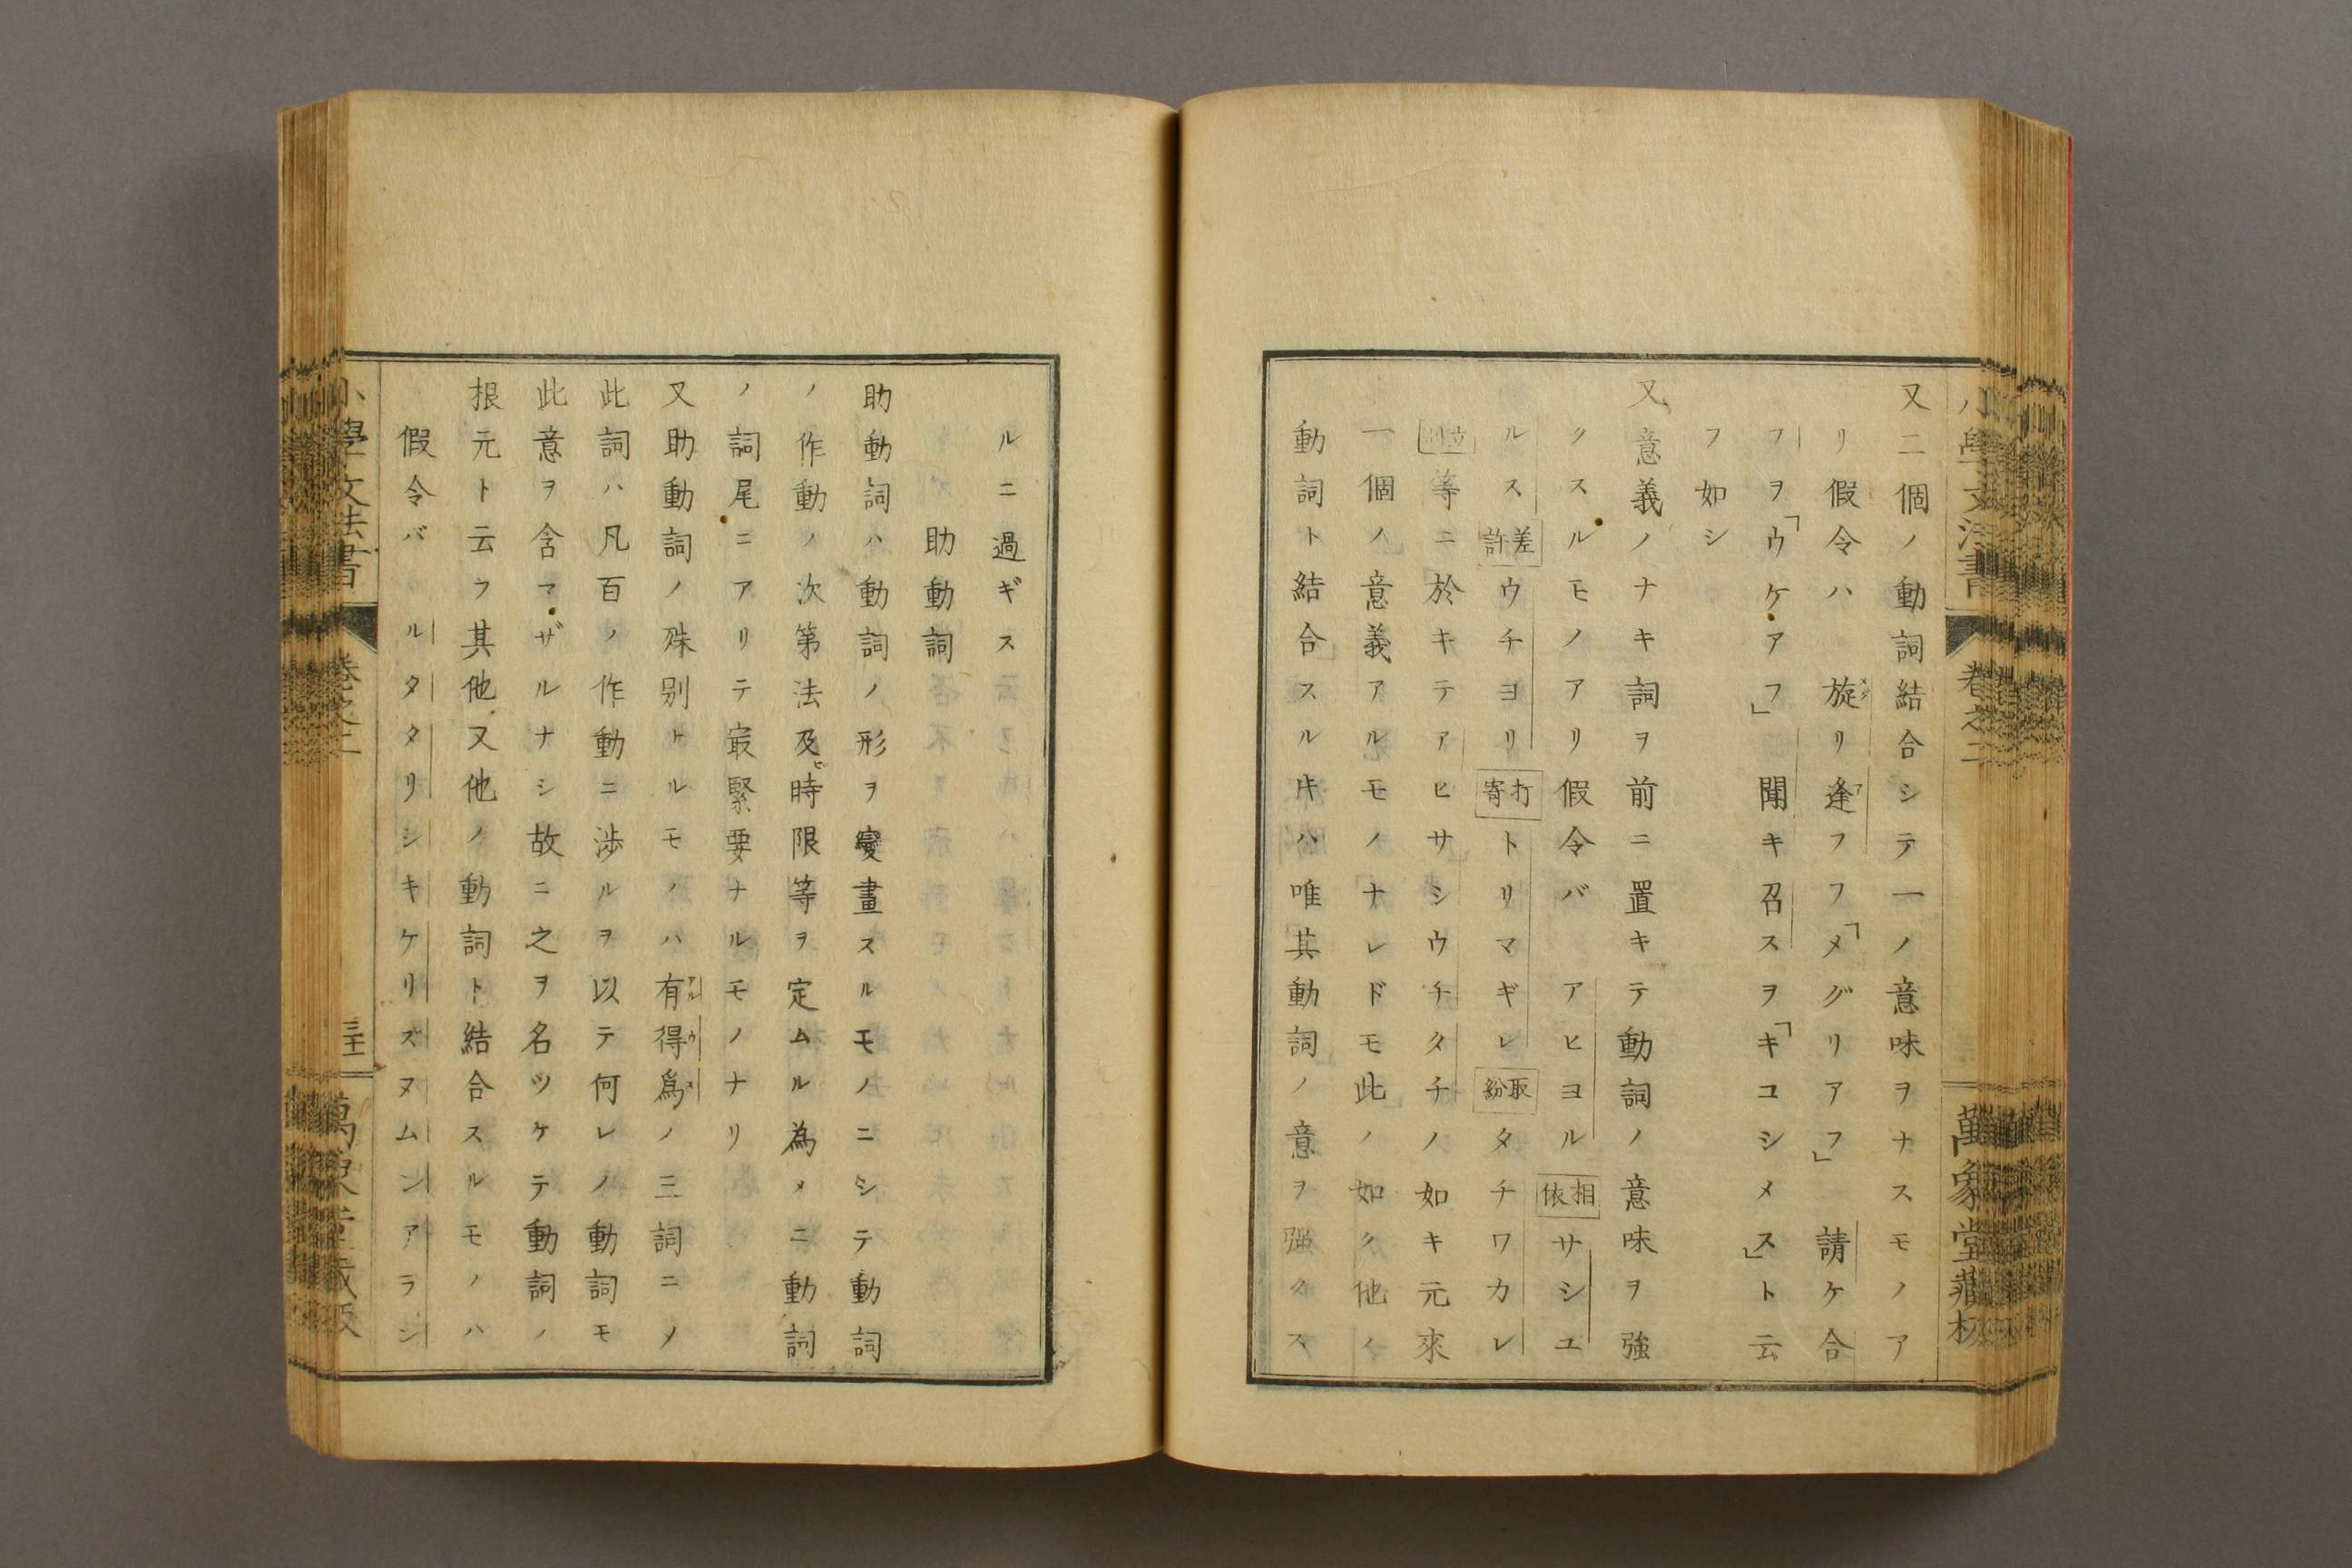 又二個ノ動詞結合シテ一ノ意味ヲナスモノア
リ假令ハ旋リ逢フフ「メグリアフ」請ケ合
フヲ「ウケアフ」聞キ召スヲ「キコシメス」ト云
フ如シ
又意義ノナキ詞ヲ前ニ置キテ動詞ノ意味ヲ強
クスルモノアリ假令バアヒヨル相依サシユ
ルス差許ウチヨリ打寄トリマギレ取紛タチワカレ
立別等ニ於キテアヒサシウチタチノ如キ元來
一個ノ意義アルモノナレドモ此ノ如ク他ノ
動詞ト結合スルキハ唯其動詞ノ意ヲ强クス
小學文法書
卷之二
萬象堂藏板
ルニ過ギス
助動詞
助動詞ハ動詞ノ形ヲ變畫スルモノニシテ動詞
ノ作動ノ次第法及ビ時限等ヲ定ムル為メニ動詞
ノ詞尾ニアリテ最緊要ナルモノナリ
又助動詞ノ殊別トルモノハ有得爲ノ三詞ニノ
此詞ハ凡百ノ作動ニ渉ルヲ以テ何レノ動詞モ
此意ヲ含マザルナシ故ニ之ヲ名ツケテ動詞ノ
根元ト云フ其他又他ノ動詞ト結合スルモノハ
假令バルタタリシキケリズヌムンアラシ
小學文法書
卷之二
三十三
萬象堂藏板